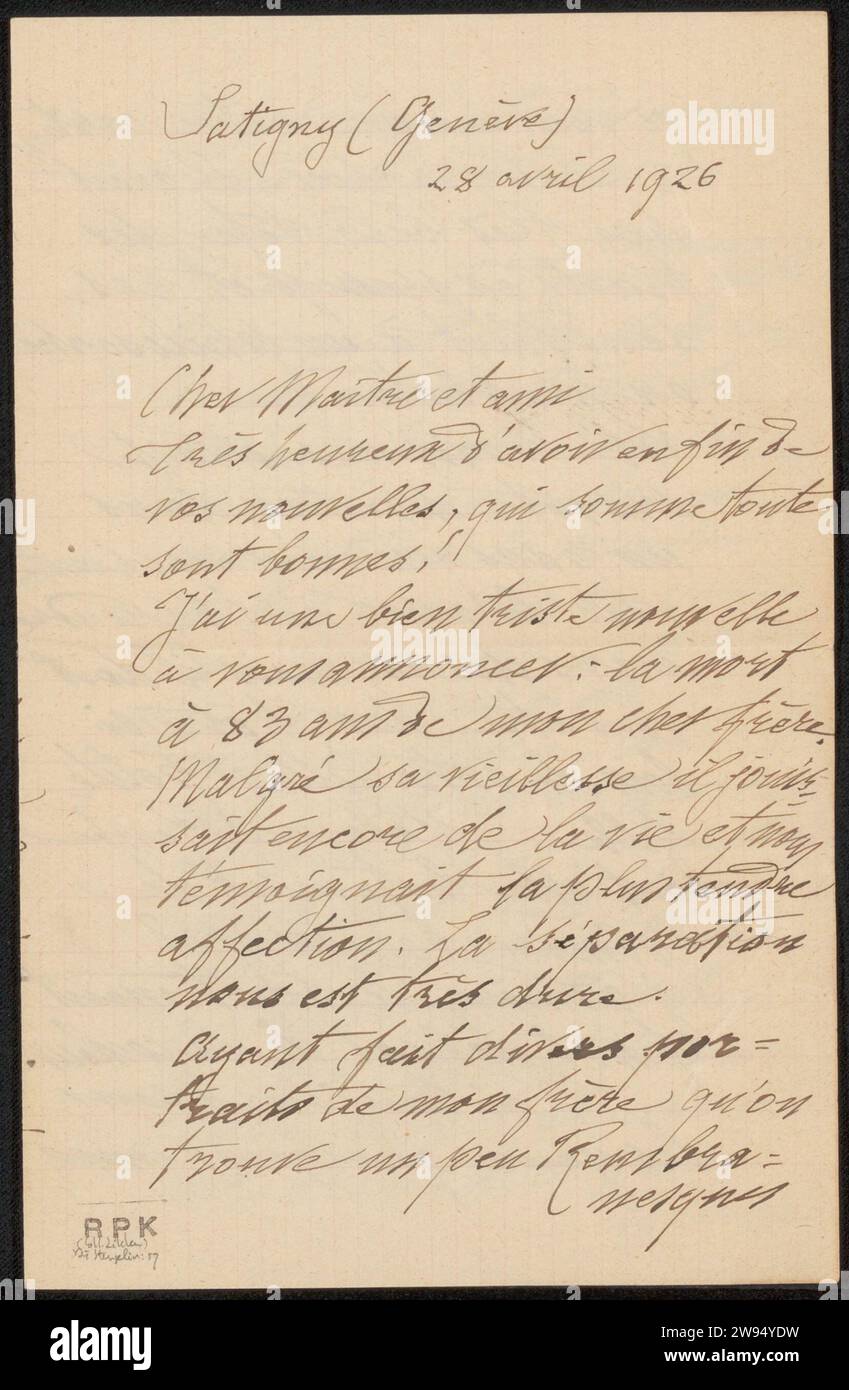 Satigny (Genève)
28 avril 1926
Cher Maître et ami
Très heureux d'avoir enfin de
vos nouvelles, qui somme toute
sont bonnes!
J'ai une bien triste nouvelle
à vous annoncer: la mort
à 83 ans de mon cher frère.
Malgré sa vieillesse il jouis-
sait encore de la vie et nous
témoignait la plus tendre
affection. La séparation
nous est très dure.
Ayant fait divers por=
traits de mon frère qu'on
trouve un peu Rembra=
nesques
RPK
alamy
Image ID: 2W94YDW
www.alamy.com